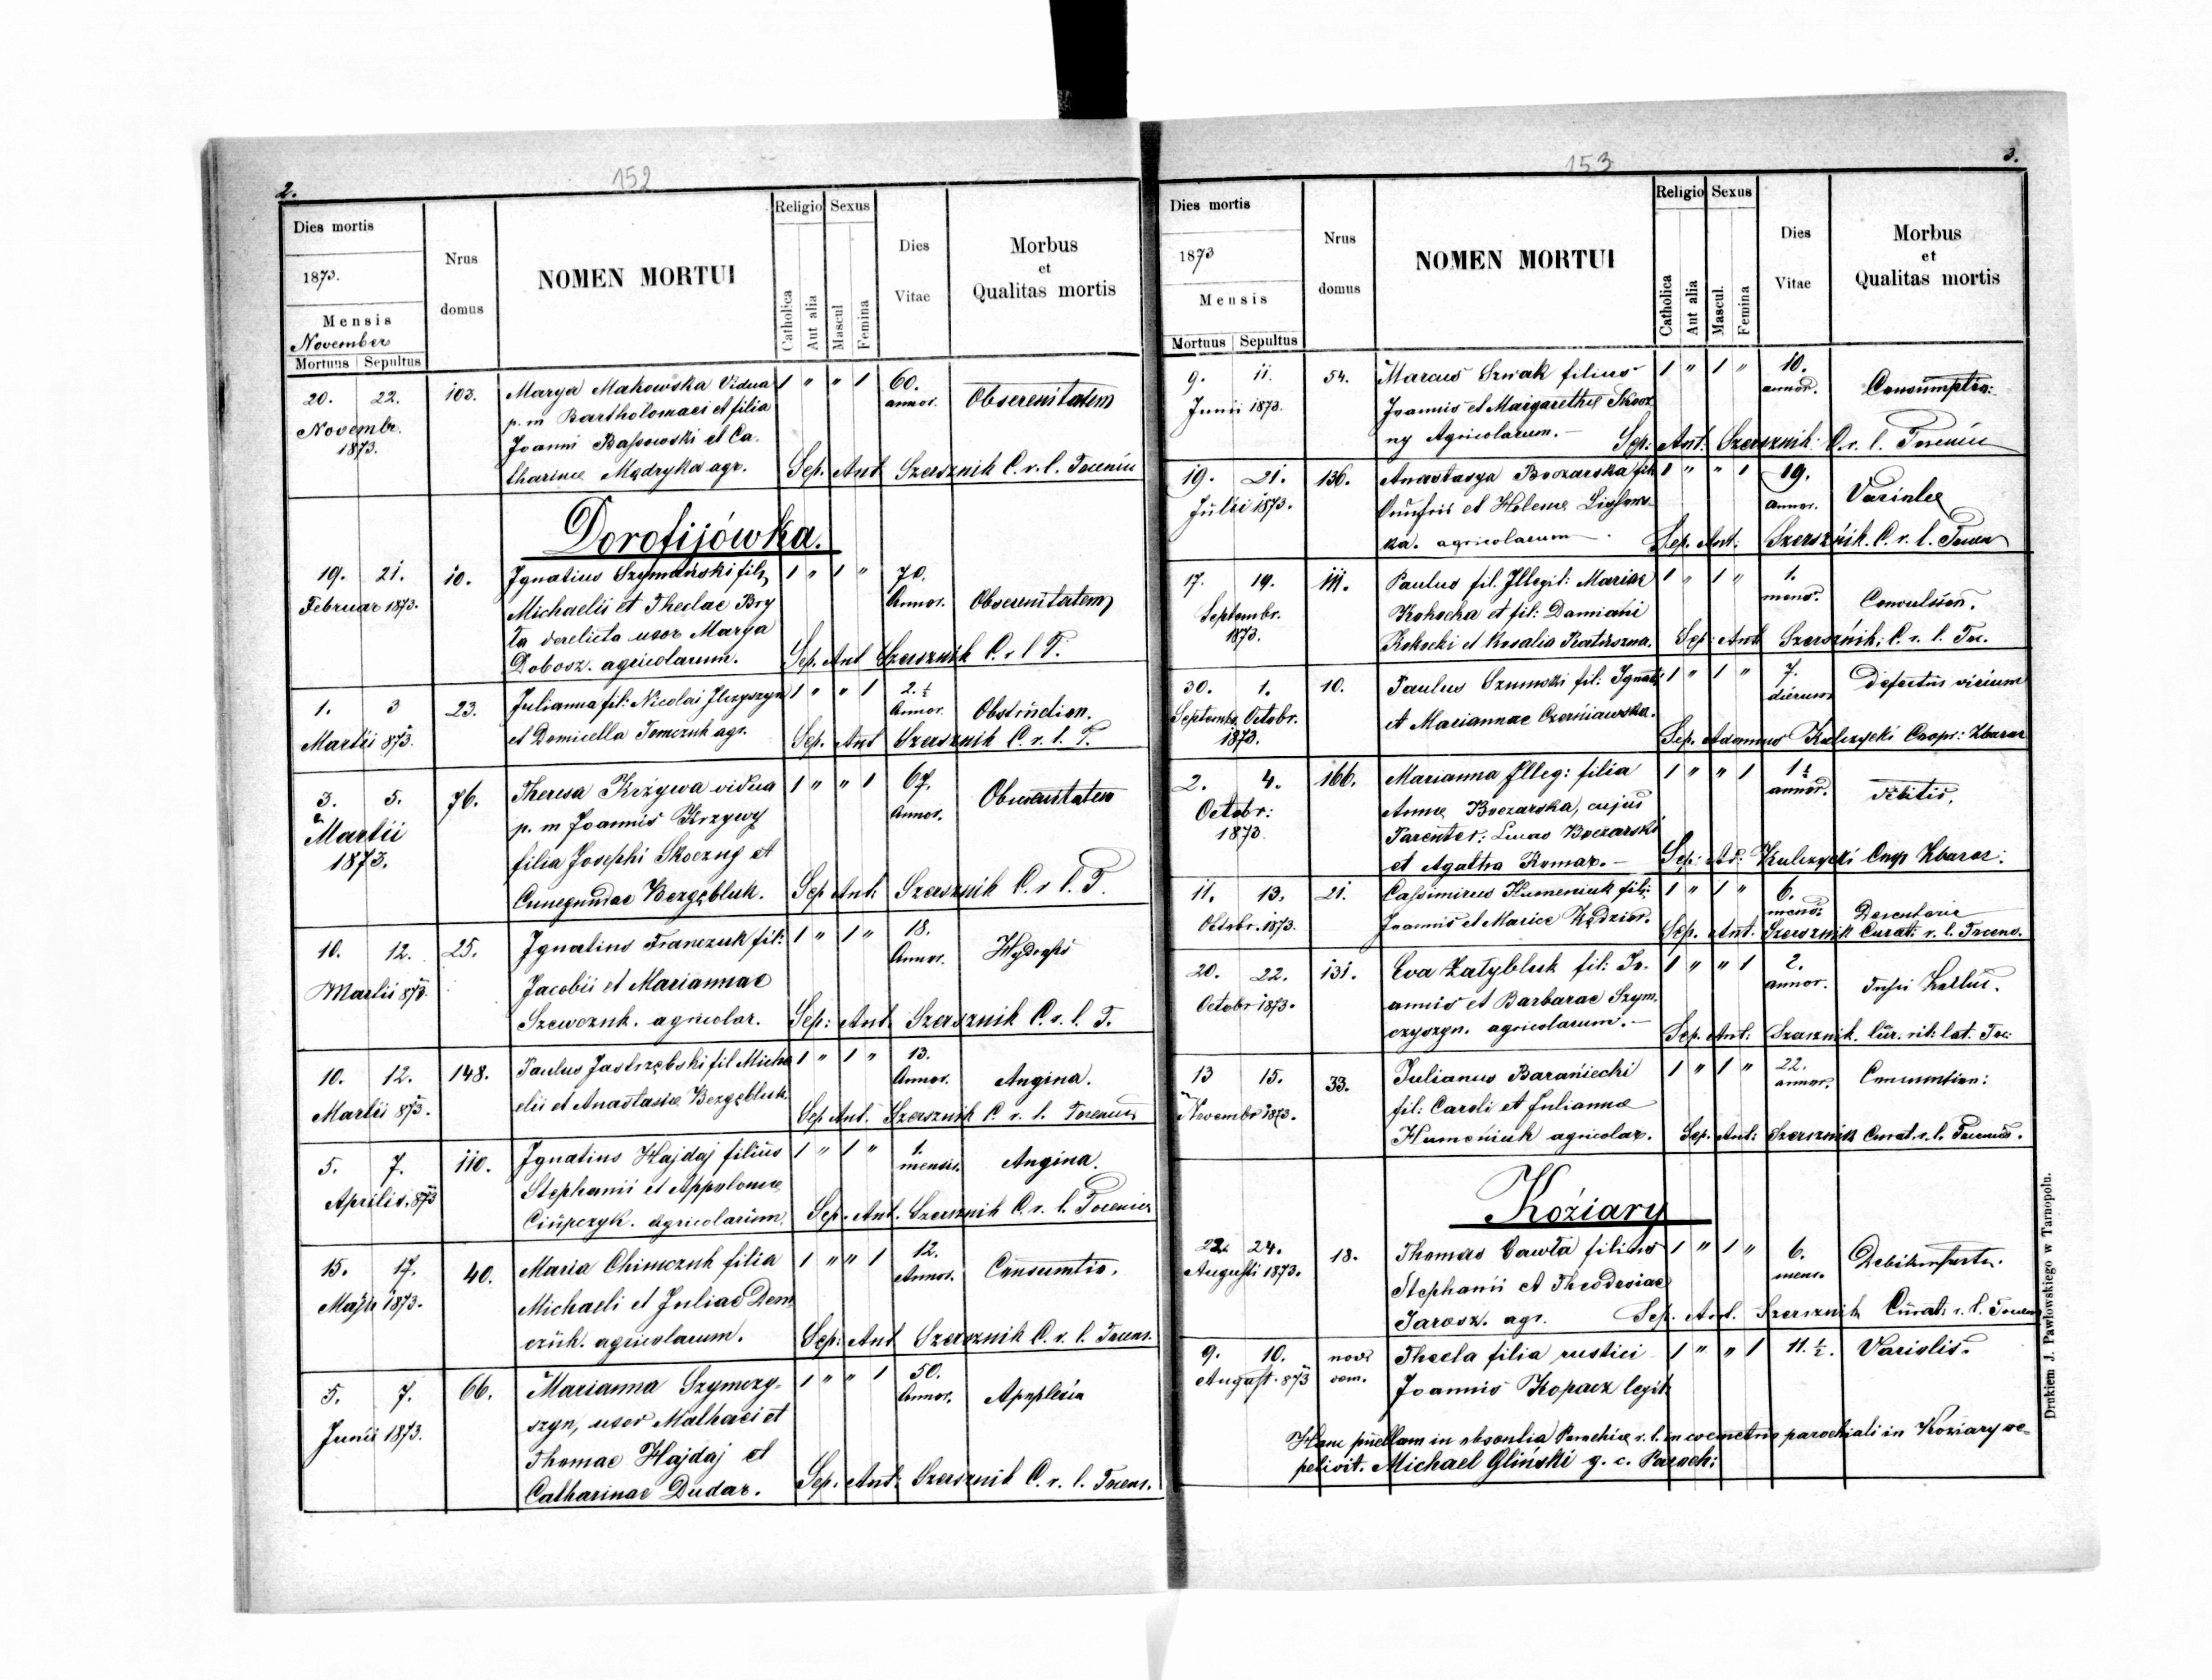 2.
152
Dies mortis
1873.
Mensis
November
Mortuus Sepultus
Nrus domus
NOMEN MORTUI
Religio Sexus
Catholica Aut alia Mascul Femina
Dies Vitae
Morbus et Qualitas mortis
20. 22. 103. Marya Mahowska Vidua 1 " " 1 60.
Novembr. p. m Bartholomaei et filia annor. Obserenitatem
1873. Joanni et Ca-
tharinae Mędryka agr. Sep. Ant Szersznik C. r. l.
Dorofijówka.
19. 21. 10. Ignatius Szymański fil. 1 " 1 " 70.
Februar 1873. Michaelis et Theclae Bry Annor.
ta derelicta uxor Marya
Dobosz. agricolarum. Sep. Ant Szersznik C. r l T.
1. 3 23. Julianna fil: Nicolai Ilczyszyn 1 " " 1 2. ½
Martii 873. et Domicella Tomczuk agr. Annor. Obstruction.
Sep. Ant Szersznik C. r. l. T.
3. 5. 76. Theresa Krzywa vidua 1 " " 1 67.
Martii p. m Joannis Krzywy Annor.
1873. filia Josephi Skoczny et
Cunegundae Bezgębluk. Sep Ant. Szersznik C. r l. T.
10. 12. 25. Ignatius Franczuk fil: 1 " 1 " 18.
Martii 873. Jacobii et Mariannae Annor.
Szewczuk. agricolar. Sep: Ant. Szersznik C. r. l. T.
10. 12. 148. Paulus Jastrzębski fil Micha 1 " 1 " 13.
Martii 873. elii et Anastasiae Bezgębluk. Annor. Angina.
Sep Ant. Szersznik C. r. l.
5. 7. 110. Ignatius Hajdaj filius 1 " 1 " 1.
Aprilis. 873 Stephanii et Appolonia mensis. Angina.
Ciupczyk. agricolarum. Sep. Ant. Szersznik C. r. l.
15. 17. 40. Maria Chimczuk filia 1 " " 1 12.
Maji 1873. Michaeli et Juliae Dem Annor. Consumtio.
czuk. agricolarum. Sep: Ant Szersznik C. r. l.
5. 7. 66. Marianna Szymczy- 1 " " 1 50.
Junii 1873. szyn, uxor Mathaei et Annor. Apoplexia
Thomae Hajdaj et
Catharinae Dudar. Sep. Ant: Szersznik C. r. l.
3.
153
Dies mortis
1873
Mensis
Mortuus Sepultus
Nrus domus
NOMEN MORTUI
Religio Sexus
Catholica Aut alia Mascul. Femina
Dies Vitae
Morbus et Qualitas mortis
9. 11. 54. Marcus filius 1 " 1 " 10.
Junii 1873. Joannis et Margarethe Skocz annor. Consumptio:
ny Agricolarum. Sep: Ant: Szersznik C. r. l.
19. 21. 136. Anastasya Boczarska fil. 1 " " 1 19.
Julii 1873. Onufrii et Helenae annor.
ka. agricolarum Sep. Ant: Szersznik. C. r. l.
17. 19. 111. Paulus fil. Illegit: Mariae 1 " 1 " 1.
Septembr. Kokocka et fil: Damiani mens. Convulsion.
1873. Kokocki et Rosalia Sep: Ant Szersznik. C. r. l.
30. 1. 10. Paulus Szumski fil: Ignati 1 " 1 " 7.
Septemb. Octobr. et Mariannae Czerniawska. dierum defectus virium
1873. Sep. Adamus Kulczycki Coopr: Zbaraz
2. 4. 166. Marianna Illeg: filia 1 " " 1 1 ½
Octobr: Annae Boczarska, cujus annor.
1873. Parentes: Lucas Boczarski
et Agatha Komar. Sep: Ad: Kulczycki Zbaraz.
11. 13. 21. Cassimirus Humeniuk fil: 1 " 1 " 6.
Octobr. 1873. Joannis et Mariae Kędzior. mens.
Sep. Ant. Szersznik Curat. r. l.
20. 22. 131. Eva Zatybluk fil: Jo- 1 " " 1 2.
Octobr 1873. annis et Barbarae Szym- annor.
czyszyn. agricolarum. Sep. Ant: Szersznik. Cur. rit: lat.
13 15. 33. Julianus Baraniecki 1 " 1 " 22.
Novembr 1873. fil: Caroli et Julianna annor. Consumtion:
Humeniuk agricolar. Sep. Ant: Szersznik Curat. r. l.
Koziary
22. 24. 18. Thomas Gawła filius 1 " 1 " 6.
Augusti 1873. Stephanii et Theodosiae mens.
Jarosz. agr. Sep. Ant. Szersznik Curat: r. l.
9. 10. nova Thecla filia rustici 1 " " 1 11. ½. Variolis.
August. 873 dom. Joannis Kopacz legit
Hanc puellam in absentia Parochiae r. l. in coemeterio parochiali in Koziary se-
pelivit. Michael Gliński g. c. Paroch:
Drukiem J. Pawłowskiego w Tarnopolu.